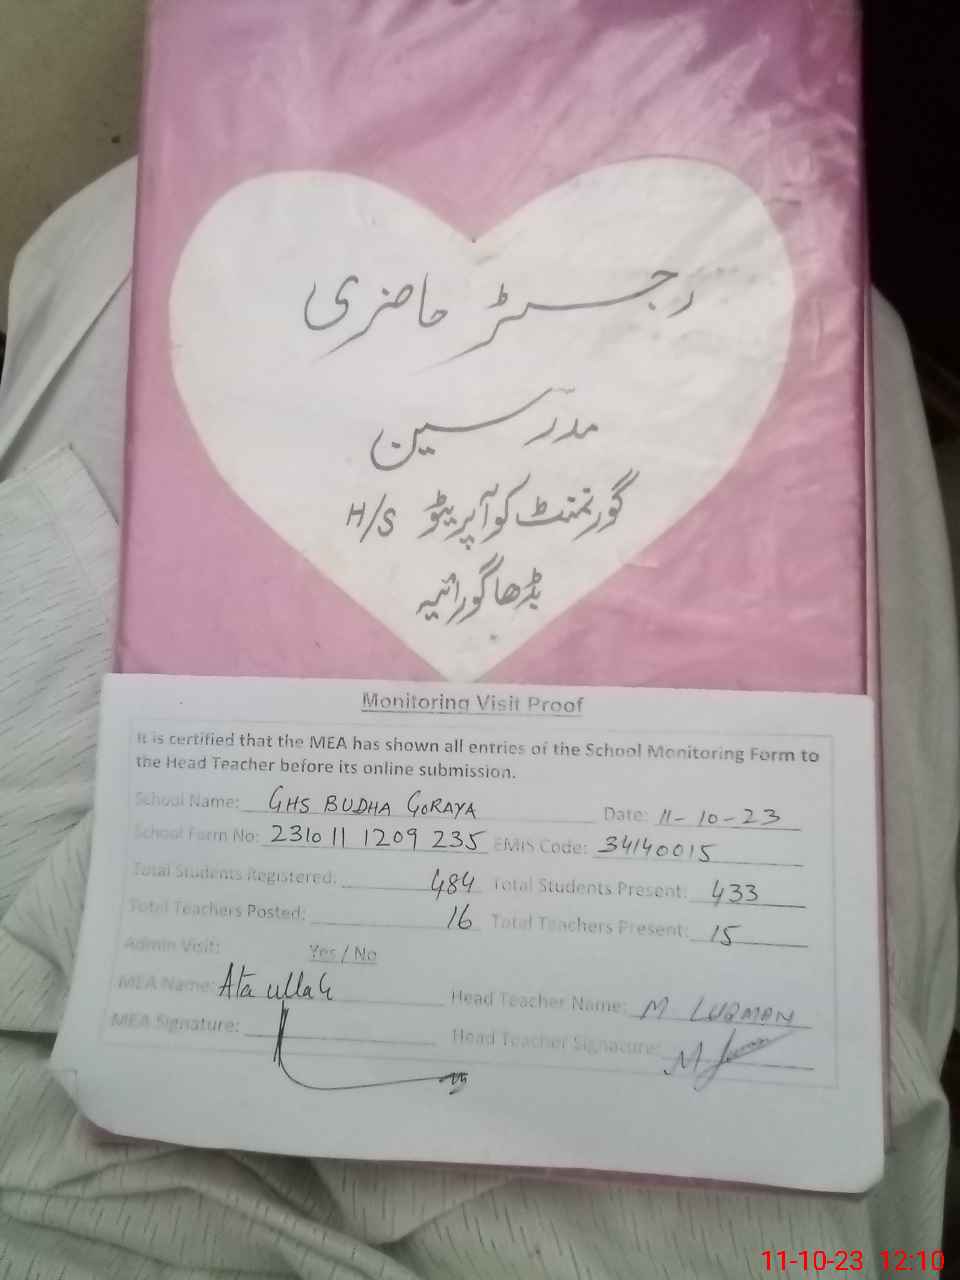 رجسٹر حاضری
مدرسین
گورنمنٹ کوآپریٹو H/S
بڈھا گورائیہ
Monitoring Visit Proof
It is certified that the MEA has shown all entries of the School Monitoring Form to
the Head Teacher before its online submission.
School Name: GHS BUDHA GORAYA Date: 11-10-23
School Form No: 231011 1209 235 EMIS Code: 34140015
Total Students Registered: 484 Total Students Present: 433
Total Teachers Posted: 16 Total Teachers Present: 15
Admin Visit: Yes / No
MEA Name: Ata ullah Head Teacher Name: M LUQMAN
MEA Signature: Head Teacher Signature:
11-10-23 12:10